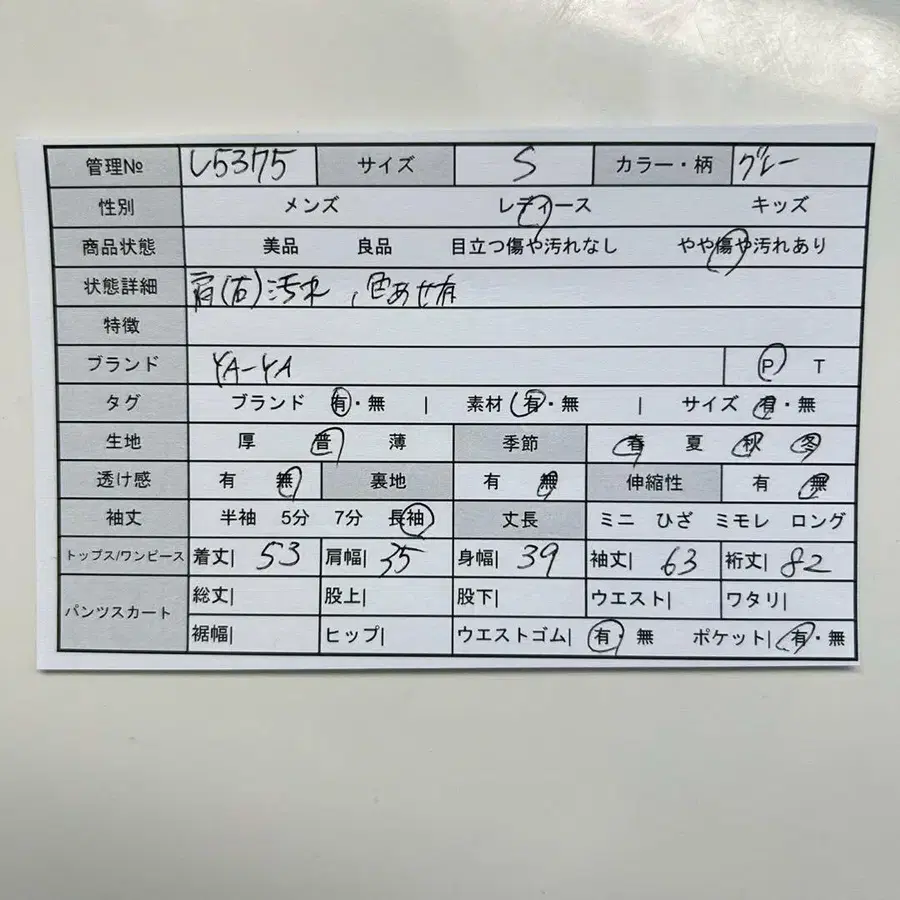 管理№ L5375 サイズ S カラー・柄 グレー
性別 メンズ レディース キッズ
商品状態 美品 良品 目立つ傷や汚れなし やや傷や汚れあり
状態詳細 肩(右)汚れ、色あせ有
特徴
ブランド YA-YA P T
タグ ブランド 有・無 | 素材 有・無 | サイズ 有・無
生地 厚 普 薄 季節 春 夏 秋 冬
透け感 有 無 裏地 有 無 伸縮性 有 無
袖丈 半袖 5分 7分 長袖 丈長 ミニ ひざ ミモレ ロング
トップス/ワンピース 着丈| 53 肩幅| 35 身幅| 39 袖丈| 63 裄丈| 82
パンツスカート 総丈| 股上| 股下| ウエスト| ワタリ|
裾幅| ヒップ| ウエストゴム| 有・無 ポケット| 有・無